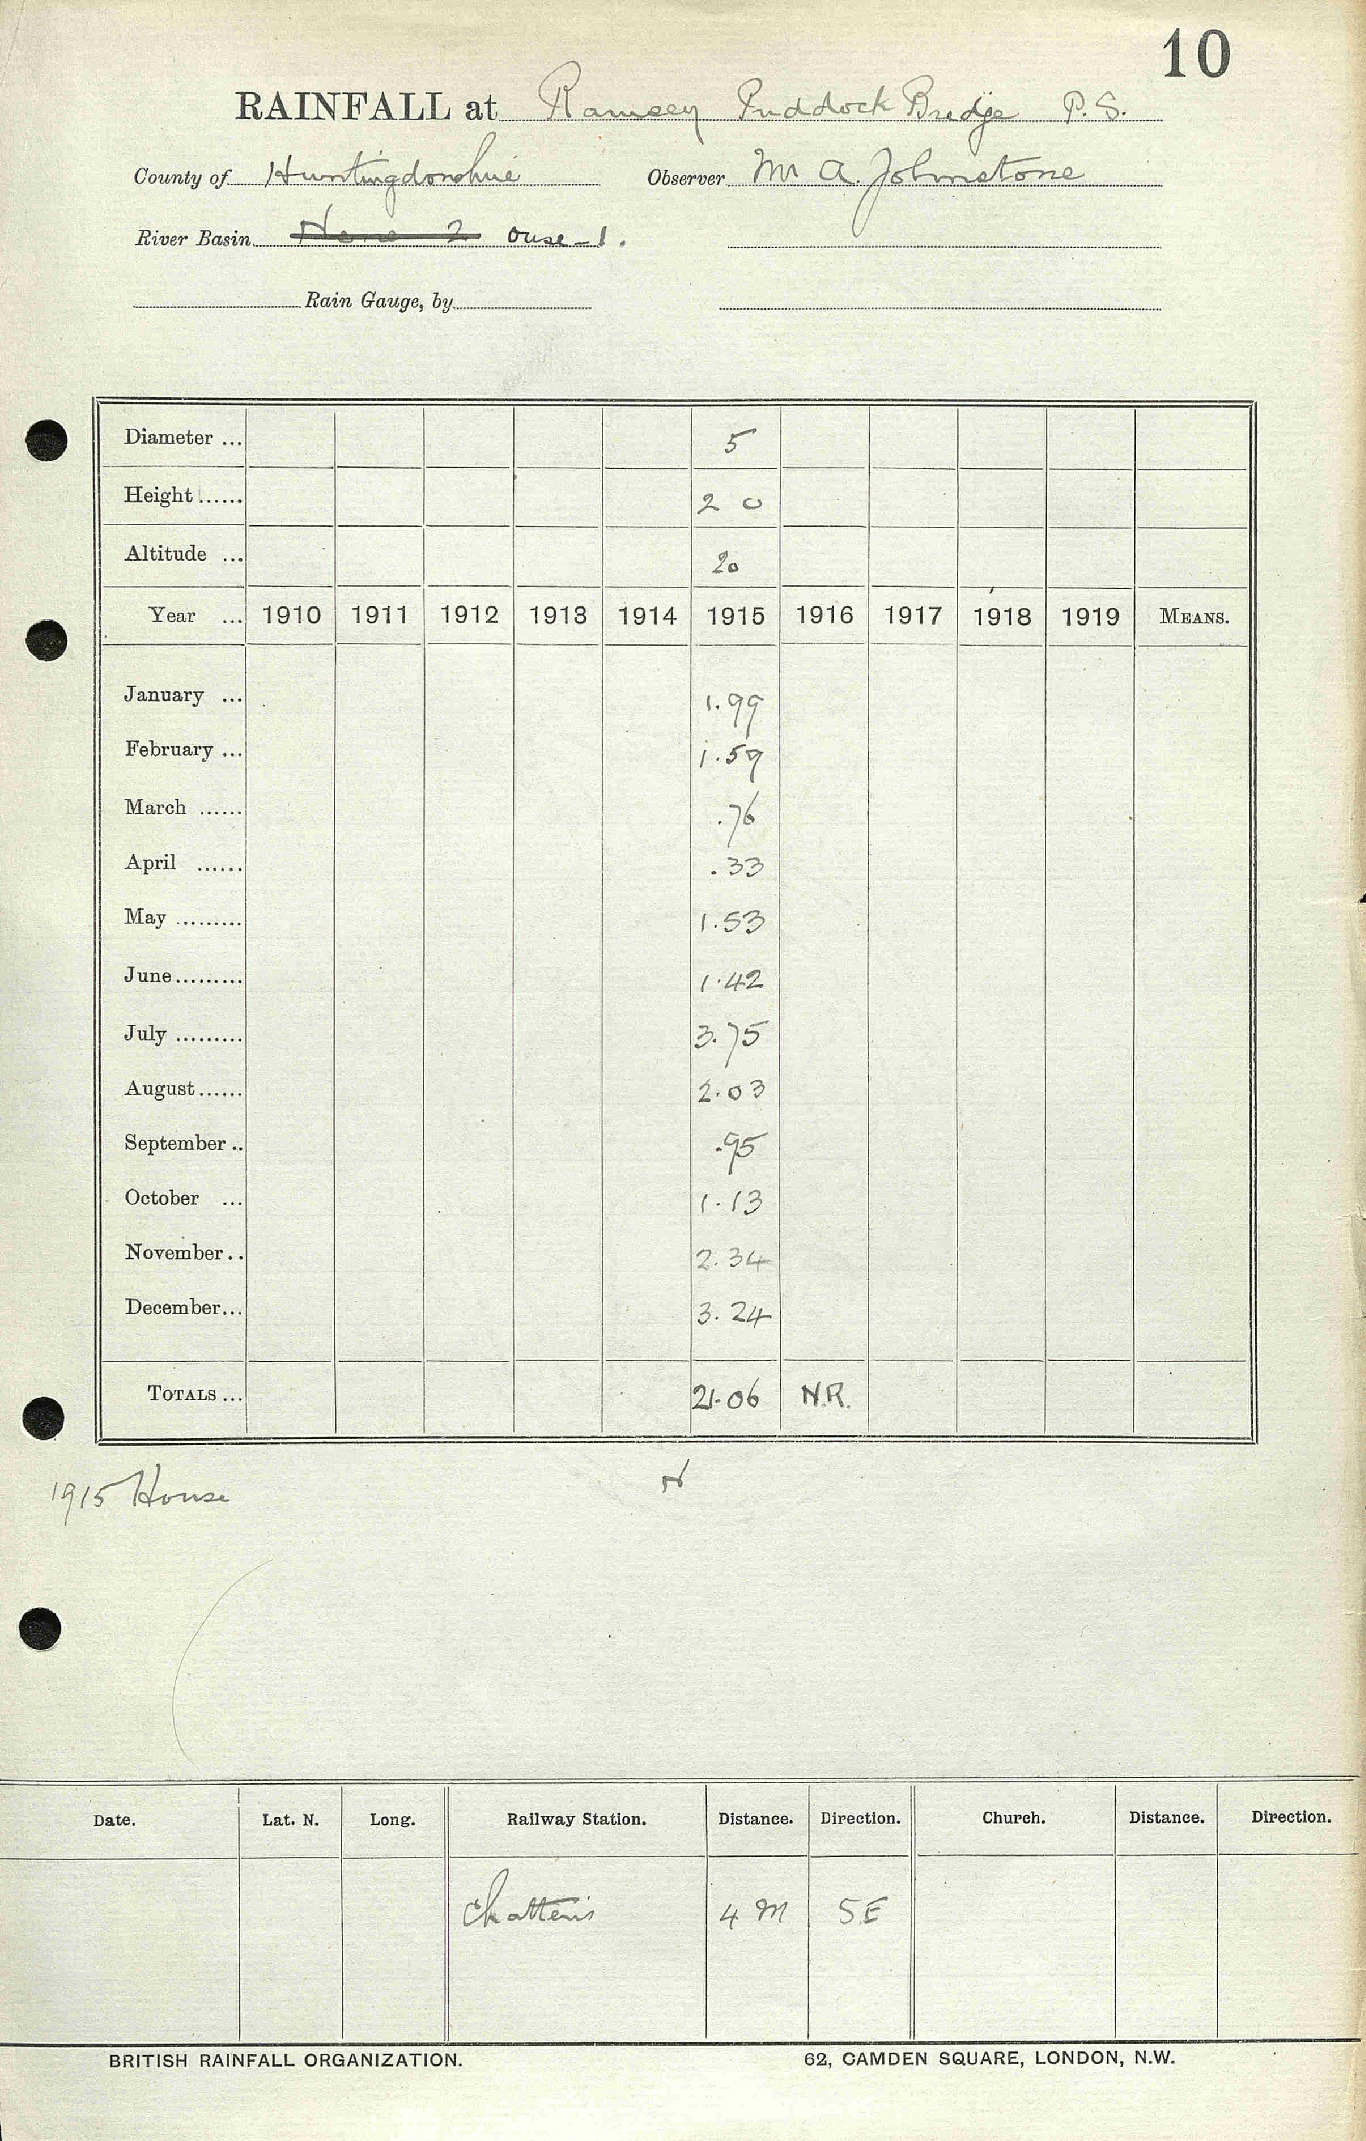 10
RAINFALL at Ramsey Puddock Bridge P.S.
County of Huntingdonshire Observer Mr A. Johnstone
River Basin Nene 2 Ouse - 1.
Rain Gauge, by
Diameter ... 5
Height ...... 2 0
Altitude ... 20
Year ... 1910 1911 1912 1913 1914 1915 1916 1917 1918 1919 MEANS.
January ... 1.99
February ... 1.59
March ...... .76
April ...... .33
May ......... 1.53
June ......... 1.42
July ......... 3.75
August ...... 2.03
September .. .95
October ... 1.13
November .. 2.34
December ... 3.24
TOTALS ... 21.06 N.R.
1915 House N
Date. Lat. N. Long. Railway Station. Distance. Direction. Church. Distance. Direction.
Chatteris 4 M SE
BRITISH RAINFALL ORGANIZATION. 62, CAMDEN SQUARE, LONDON, N.W.